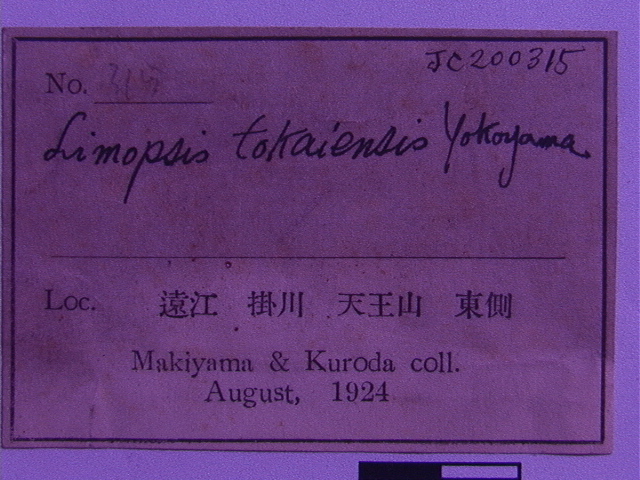 JC200315
No. 315
Limopsis tokaiensis Yokoyama.
Loc. 遠江 掛川 天王山 東側
Makiyama & Kuroda coll.
August, 1924